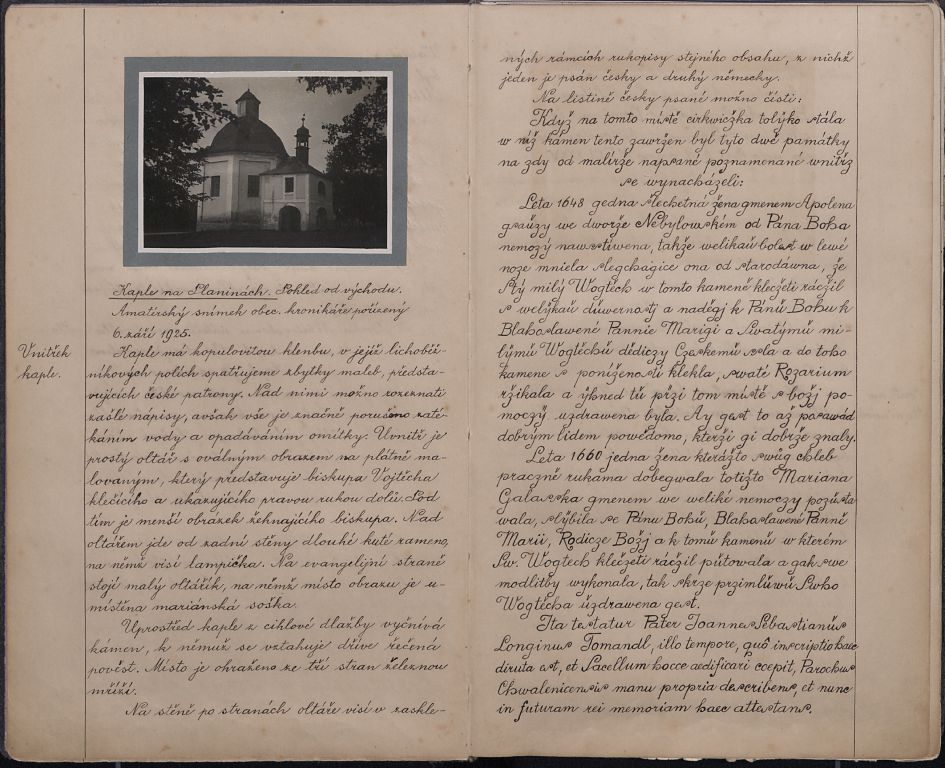 Kaple na Planinách. Pohled od východu.
Amatérský snímek obec. kronikáře pořízený
6. září 1925.
Vnitřek
kaple.
Kaple má kopulovitou klenbu, v jejíž lichoběž-
níkových polích spatřujeme zbytky maleb, předsta-
vujících české patrony. Nad nimi možno rozeznati
zašlé nápisy, avšak vše je značně porušeno zaté-
káním vody a opadáváním omítky. Uvnitř je
prostý oltář s oválným obrazem na plátně ma-
lovaným, který představuje biskupa Vojtěcha
klečícího a ukazujícího pravou rukou dolů. Pod
tím je menší obrázek žehnajícího biskupa. Nad
oltářem jde od zadní stěny dlouhé kuté rameno,
na němž visí lampička. Na evangelijní straně
stojí malý oltářík, na němž místo obrazu je u-
místěna mariánská soška.
Uprostřed kaple z cihlové dlažby vyčnívá
kámen, k němuž se vztahuje dříve řečená
pověst. Místo je ohraženo ze tří stran železnou
mříží.
Na stěně po stranách oltáře visí v zaskle-
ných rámcích rukopisy stejného obsahu, z nichž
jeden je psán česky a druhý německy.
Na listině česky psané možno čísti:
Když na tomto místě cirkwiczka tolýko stála
w níž kámen tento zawržen byl tyto dwě památky
na zdy od malírže napsané poznamenané wnitrz
se wynacházeli:
Léta 1648 gedna šlechetná žena gmenem Apolena
gsaúzy we dworže Nebylowském od Pána Boha
nemozý nawsstiwena, takže welikaú bolest w lewé
noze mniela slegchagice ona od starodáwna, že
Stý milý Wogtěch w tomto kameně klečzeti ráczil
s welýkaú dúwernostj a naděgj k Pánú Bohu k
Blahoslawené Pannie Marigi a Swatýmú mi-
lýmú Wogtěchú dědiczy Czeskému ssla a do toho
kamene s poníženostú klekla, swaté Rozarium
ržikala a yhned tú przi tom místě s božj po-
moczý uzdrawena byla. Ay gest to až posawád
dobrým lidem powědomo, kterži gi dobrže znaly.
Léta 1660 jedna žena kterážto swúg chleb
praczně rukama dobegwala totižto Mariana
Galasska gmenem we weliké nemoczy pozústa
wala, slýbila se Pánu Bohú, Blahoslawené Panně
Marii, Rodicze Božj a k tomú kamenú w kterém
Sw. Wogtech klečzeti ráczil pútowala a gak swe
modlitby wykonala, tak skrze przimlúwú Swho
Wogtěcha úzdrawena gest.
Ita testatur Pater Joannes Sebastianus
Longinus Tomandl, illo tempore, quô inscriptio haec
diruta est, et Sacellum hocce aedificari coepit, Parochus
Chwalenicensis manu propria describens, et nunc
in futuram rei memoriam haec attestans.